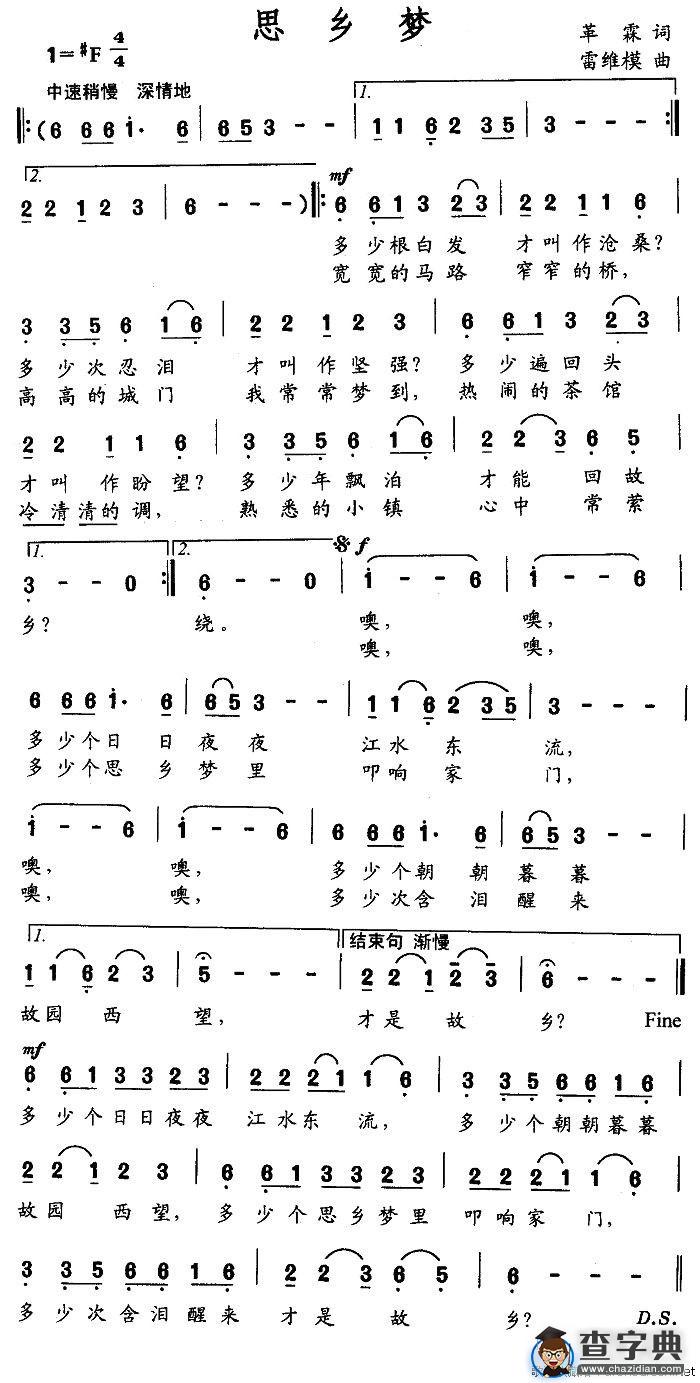 思乡梦
1=#F 4/4
革霖词
雷维模曲
中速稍慢 深情地
1.
(6 6 6 i· 6 | 6 5 3 - - | 1 1 6 2 3 5 | 3 - - - :
2.
mf
2 2 1 2 2 3 | 6 - - - ) : 6 6 1 3 2 3 | 2 2 1 1 6 |
多少根白发 才叫作沧桑?
宽宽的马路 窄窄的桥,
3 3 5 6 1 6 | 2 2 1 2 3 | 6 6 1 3 2 3 |
多少次忍泪 才叫作坚强? 多少遍回头
高高的城门 我常常梦到, 热闹的茶馆
2 2 1 1 6 | 3 3 5 6 1 6 | 2 2 3 6 5 |
才叫作盼望? 多少年飘泊 才能回故
冷清清的调, 熟悉的小镇 心中常萦
1. 2. f
3 - - 0 : 6 - - 0 | i - - 6 | i - - 6 |
乡? 绕。 噢, 噢,
噢, 噢,
6 6 6 i· 6 | 6 5 3 - - | 1 1 6 2 3 5 | 3 - - - |
多少个日日夜夜 江水东流,
多少个思乡梦里 叩响家门,
i - - 6 | i - - 6 | 6 6 6 i· 6 | 6 5 3 - - |
噢, 噢, 多少个朝朝暮暮
噢, 噢, 多少次含泪醒来
1. 结束句 渐慢
1 1 6 2 3 | 5 - - - | 2 2 1 2 3 | 6 - - - :
故园西望, 才是故乡? Fine
mf
6 6 1 3 3 2 3 | 2 2 2 1 1 6 | 3 3 5 6 6 1 6 |
多少个日日夜夜 江水东流, 多少个朝朝暮暮
2 2 1 2 3 | 6 6 1 3 3 2 3 | 2 2 2 1 1 6 |
故园西望, 多少个思乡梦里 叩响家门,
3 3 5 6 6 1 6 | 2 2 3 6 5 | 6 - - - |
多少次含泪醒来 才是故乡? D.S.
查字典
www.chazidian.com